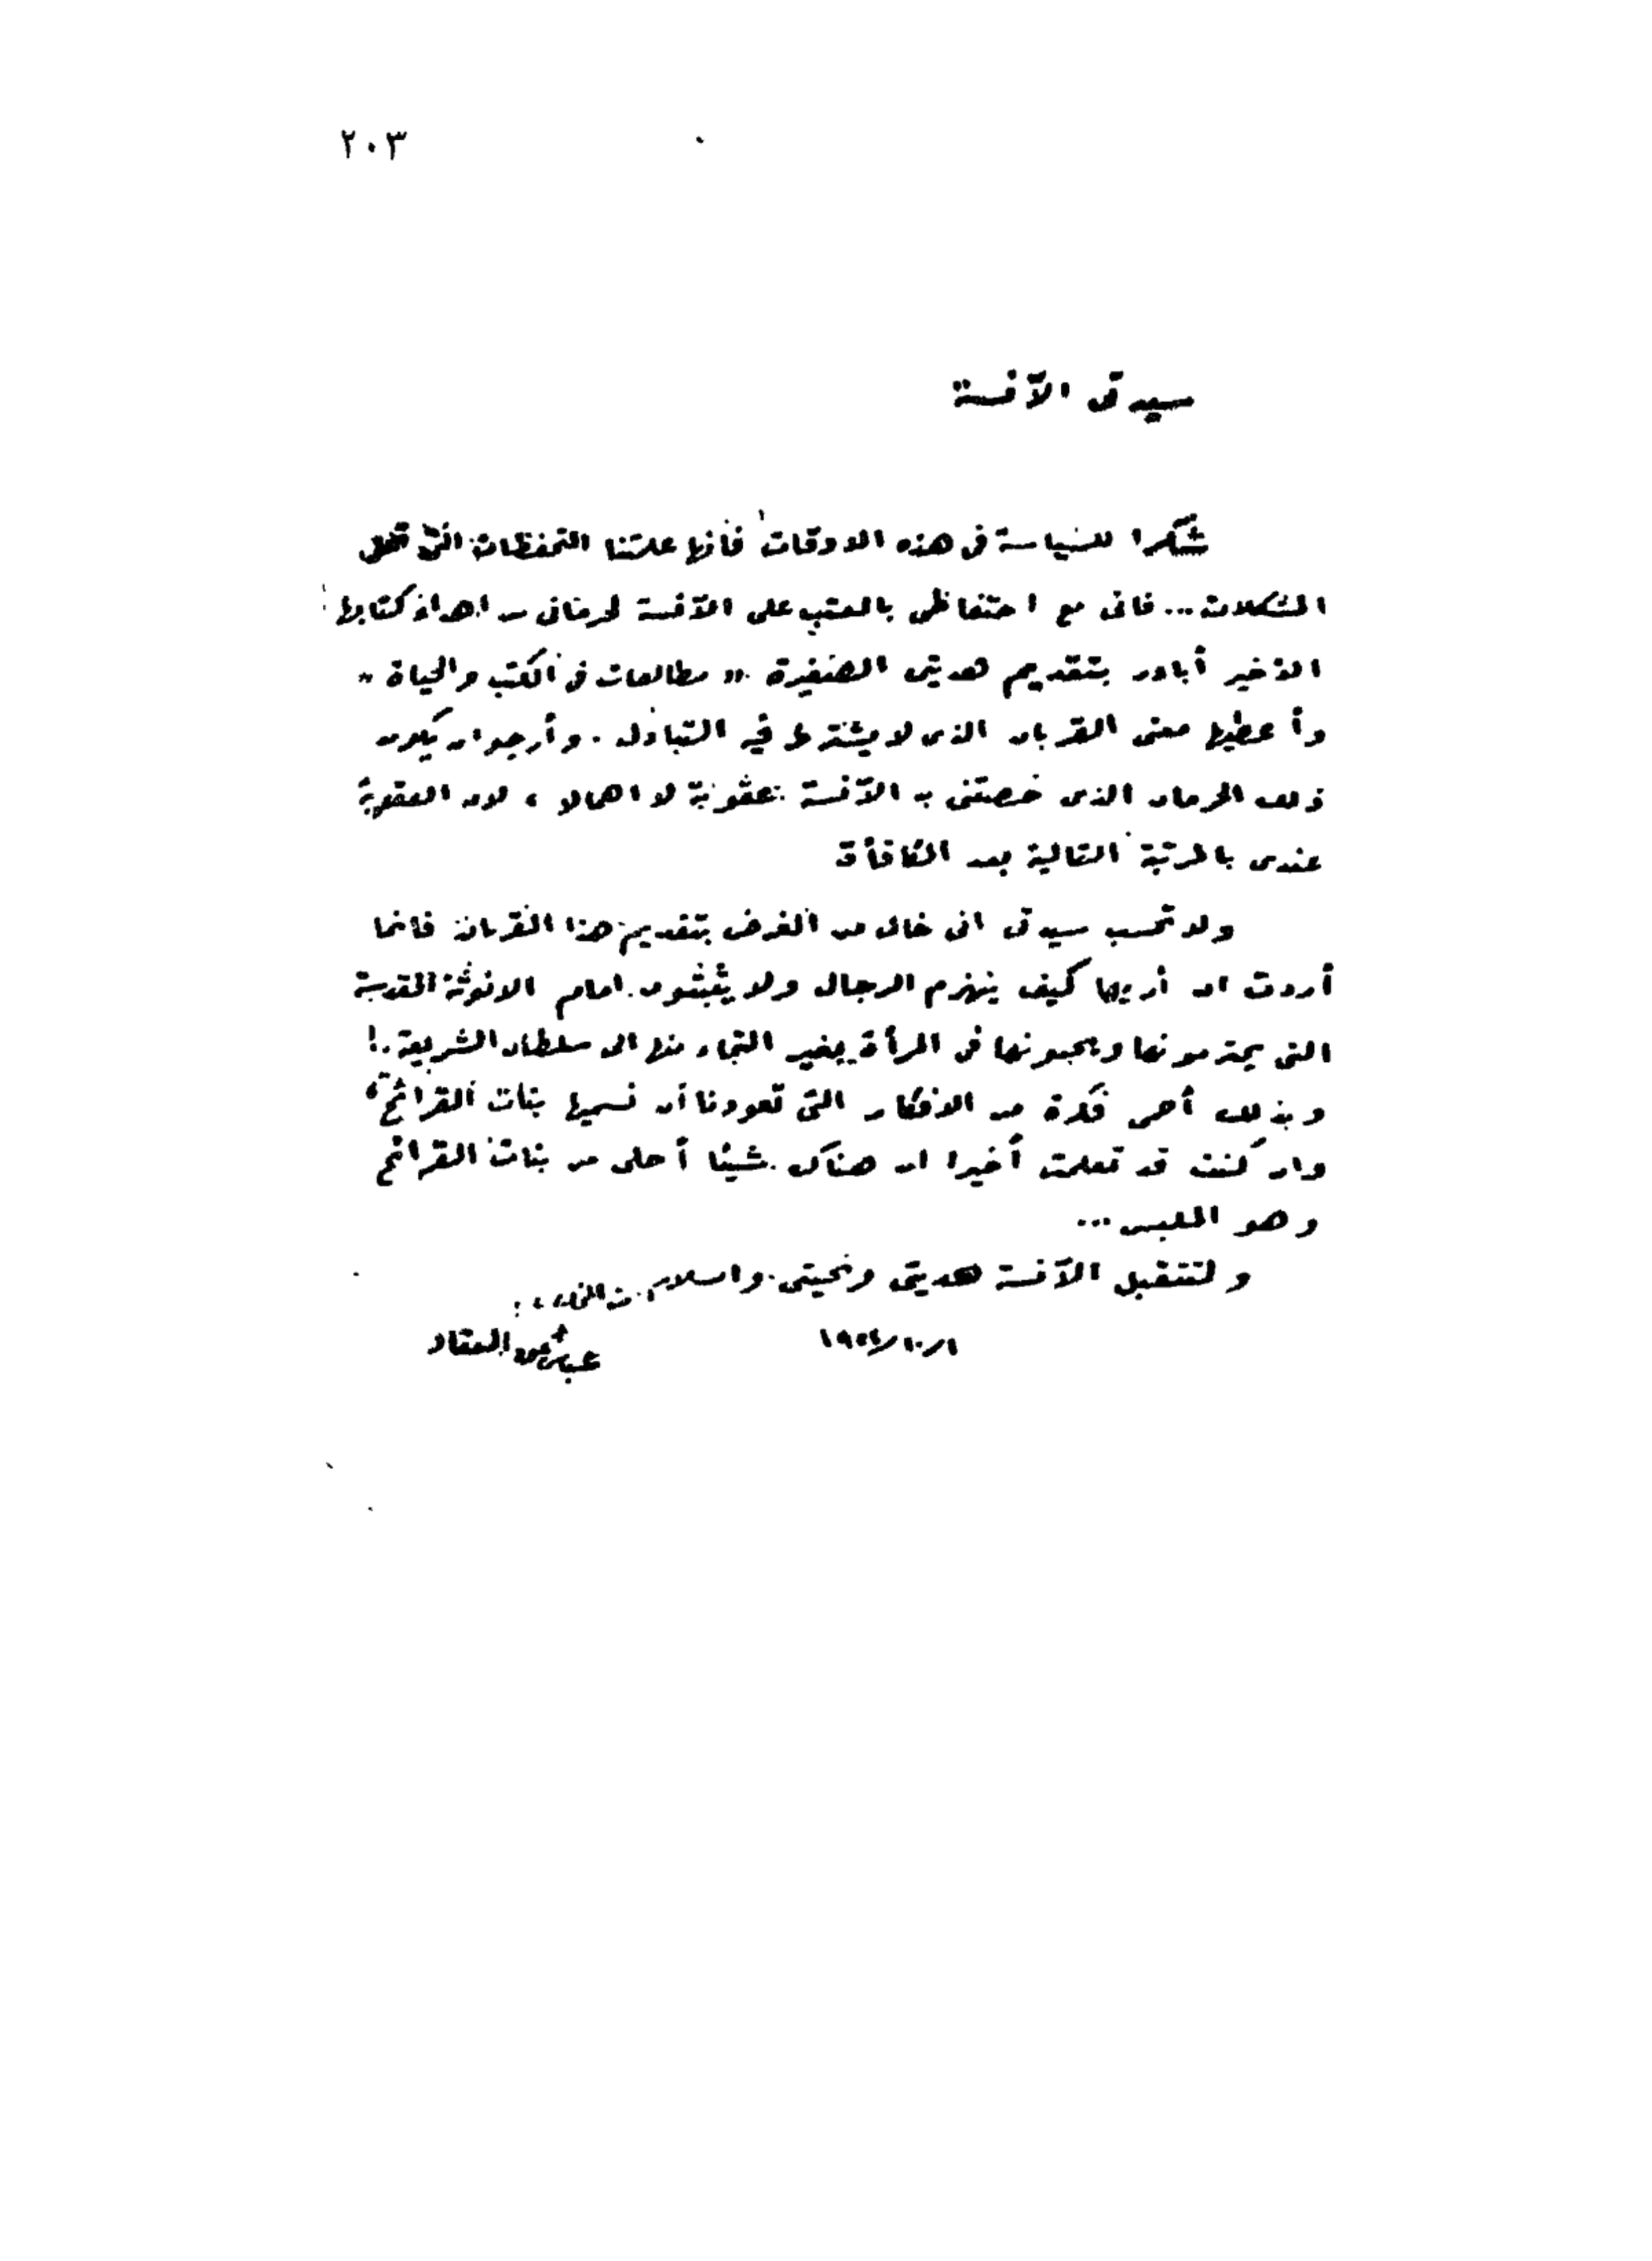 ٢٠٣
سيدتى الآنسة
شكرا للسياسة فى هذه الاوقات فأنها علمتنا التحفظات التى تحل
المشكلات... فانى مع احتفاظى بالعتب على الآنسة لحرمانى من اهداء كتابها
الأخير أبادر بتقديم هديتى الصغيرة « مطالعات فى الكتب والحياة »
وأعطيها معنى القربان الذى لا يشترط فيه التبادل. وأرجو ان يكون
ذلك الحرمان الذى خصتنى به الآنسة عقوبة لا اهمالا، لان العقوبة
عندى بالمرتبة التالية بعد المكافأة
ولا تحسب سيدتى انى خال من الغرض بتقديم هذا القربان فانما
أردت ان أريها كيف ينهزم الرجال ولا يثبتون امام الانوثة المقدسة
التى يحترمونها ويحبونها فى المرأة بغير التجاء منها الى سلطان الشريعة.!
وبذلك أحمى فكرة من الافكار التى تعودنا أن نسميها بنات القرائح،
وان كنت قد تعلمت أخيرا ان هناك شيئا أحلى من بنات القرائح
وهو الملبس...
ولتتقبل الآنسة هديتى وتحيتى والسلام من
عباس محمود العقاد